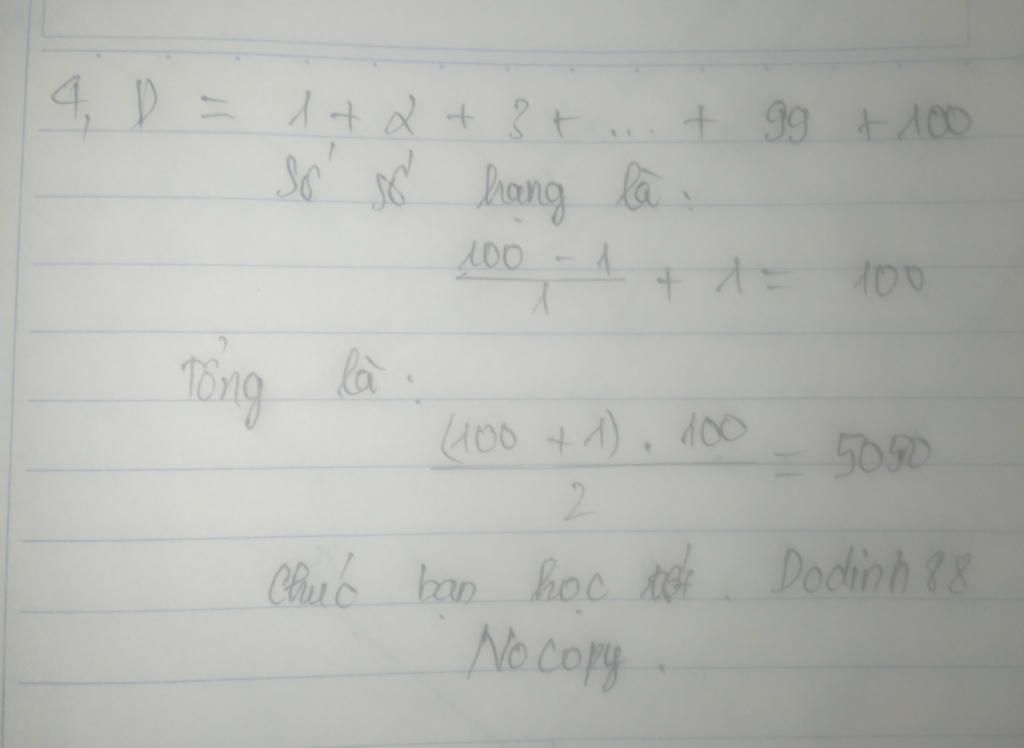 4, D = 1 + 2 + 3 + ... + 99 + 100
Số số hạng là :
100 - 1 / 1 + 1 = 100
Tổng là :
(100 + 1) . 100 / 2 = 5050
Chúc bạn học tốt. Dodinh88
No copy .